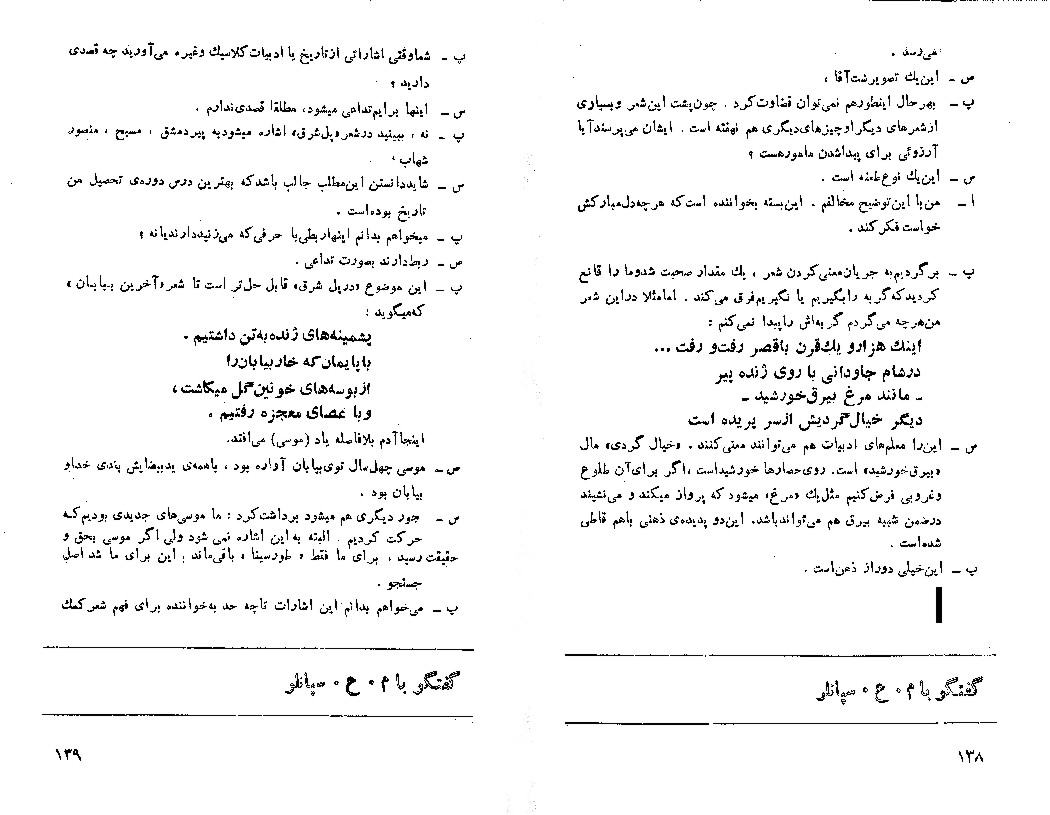 می‌رسد .
س ـ این‌یك تصویر‌ست‌آقا ،
پ ـ بهرحال اینطورهم نمی‌توان قضاوت‌کرد . چون‌پشت این‌شعر وبسیاری
ازشعرهای دیگر اوچیزهای‌دیگری هم نهفته است . ایشان می‌پرسندآیا
آرزوئی برای پیداشدن ماموهست ؟
س ـ این‌یك نوع‌طعنه است .
ا ـ من‌با این‌توضیح مخالفم . این‌بسته بخواننده است‌که هرچه‌دل‌مبارکش
خواست فکرکند .
پ ـ برگردیم‌به جریان‌معنی‌کردن شعر ، یك مقدار صحبت شدوما را قانع
کردیدکه‌گربه رابگیریم یا نگیریم‌فرق می‌کند . امامثلا دراین شعر
من‌هرچه می‌گردم گربه‌اش راپیدا نمی‌کنم :
اینك هزارو یك‌قرن باقصر رفت‌و رفت ...
درشام جاودانی با روی زنده پیر
ـ مانند مرغ بیرق‌خورشید ـ
دیگر خیال‌گردیش ازسر پریده است
س ـ این‌را معلم‌های ادبیات هم می‌توانند معنی‌کنند . «خیال گردی» مال
«بیرق‌خورشید» است. روی‌حصارها خورشیداست ،اگر برای‌آن طلوع
وغروبی فرض‌کنیم مثل‌یك «مرغ» میشود که پرواز میکند و می‌نشیند
درضمن شبیه بیرق هم می‌تواندباشد. این‌دو پدیده‌ی ذهنی باهم قاطی
شده‌است .
پ ـ این‌خیلی دوراز ذهن‌است .
گفتگو با م . ع . سپانلو
۱۳۸
پ ـ شماوقتی اشاراتی ازتاریخ یا ادبیات‌کلاسیك وغیره می‌آورید چه قصدی
دارید ؟
س ـ اینها برایم‌تداعی میشود، مطلقا قصدی‌ندارم .
پ ـ نه ، ببینید درشعر«پل‌شرق» اشاره میشودبه پیردمشق ، مسیح ، منصور
شهاب .
س ـ شایددانستن این‌مطلب جالب باشدکه بهترین درس دوره‌ی تحصیل من
تاریخ بوده‌است .
پ ـ میخواهم بدانم اینهاربطی‌با حرفی‌که می‌زنیددارندیانه ؟
س ـ ربط‌دارند بصورت تداعی .
پ ـ این موضوع «درپل شرق» قابل حل‌تر است تا شعر«آخرین بیابان»
که‌میگوید :
پشمینه‌های ژنده به‌تن داشتیم .
باپایمان‌که خاربیابان‌را
ازبوسه‌های خونین‌گل میکاشت ،
وبا عصای معجزه رفتیم .
اینجاآدم بلافاصله یاد (موسی) می‌افتد.
س ـ موسی چهل‌سال توی‌بیابان آواره بود ، باهمه‌ی یدبیضایش بندی خداو
بیابان بود .
س ـ جور دیگری هم میشود برداشت‌کرد : ما موسی‌های جدیدی بودیم‌که
حرکت کردیم . البته به‌این اشاره نمی شود ولی اگر موسی بحق و
حقیقت رسید ، برای ما فقط « طورسینا » باقی‌ماند ; این برای ما شد اصل
جستجو .
پ ـ می‌خواهم بدانم این اشارات تاچه حد به‌خواننده برای فهم شعرکمك
گفتگو با م . ع . سپانلو
۱۳۹